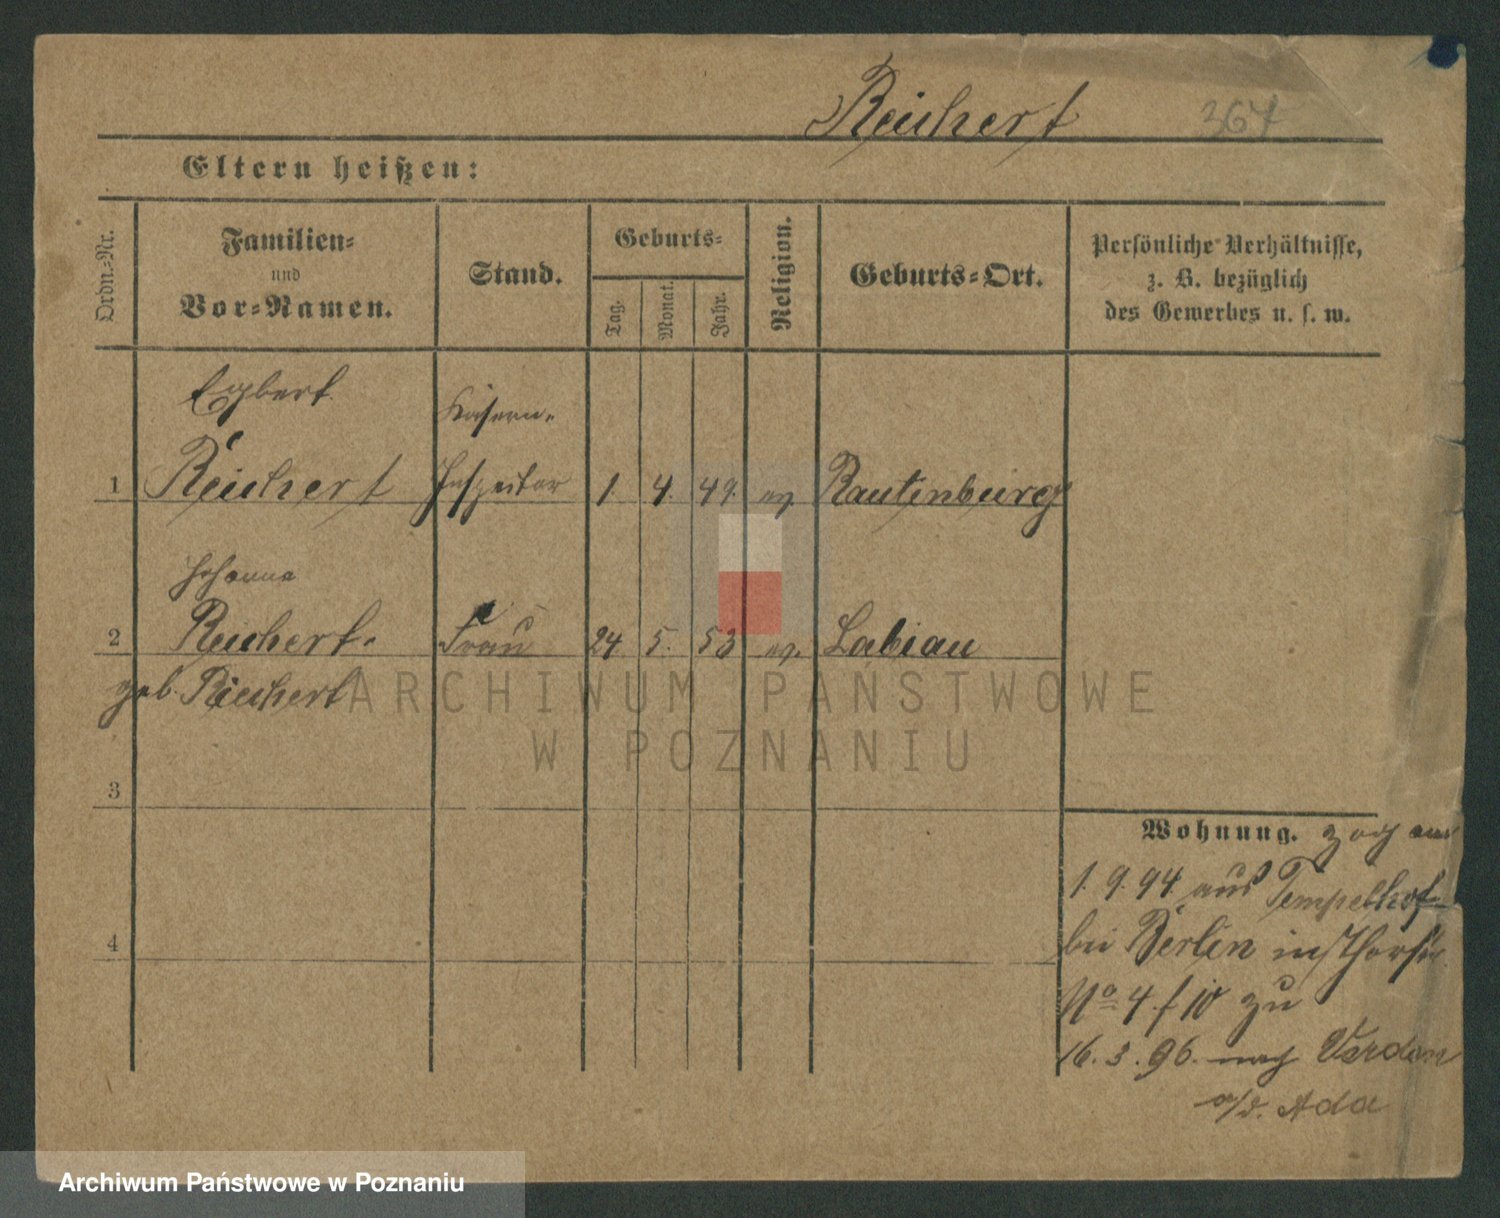 Reichert 367
Eltern heißen:
Ordn.-Nr.
Familien-
und
Vor-Namen.
Stand.
Geburts-
Tag.
Monat.
Jahr.
Religion.
Geburts-Ort.
Persönliche Verhältnisse,
z. B. bezüglich
des Gewerbes u. s. w.
Egbert Kasern-
1 Reichert Inspektor 1. 4. 49. ev. Rautenburg
Johanna
2 Reichert. Frau 24 5. 53 ev. Labiau
geb. Reichert
3
4
Wohnung. zog am
1.9.94 aus Tempelhof
bei Berlin
No 4 zu
16.3.96. nach Verden
a/d. Ada
ARCHIWUM PAŃSTWOWE
W POZNANIU
Archiwum Państwowe w Poznaniu